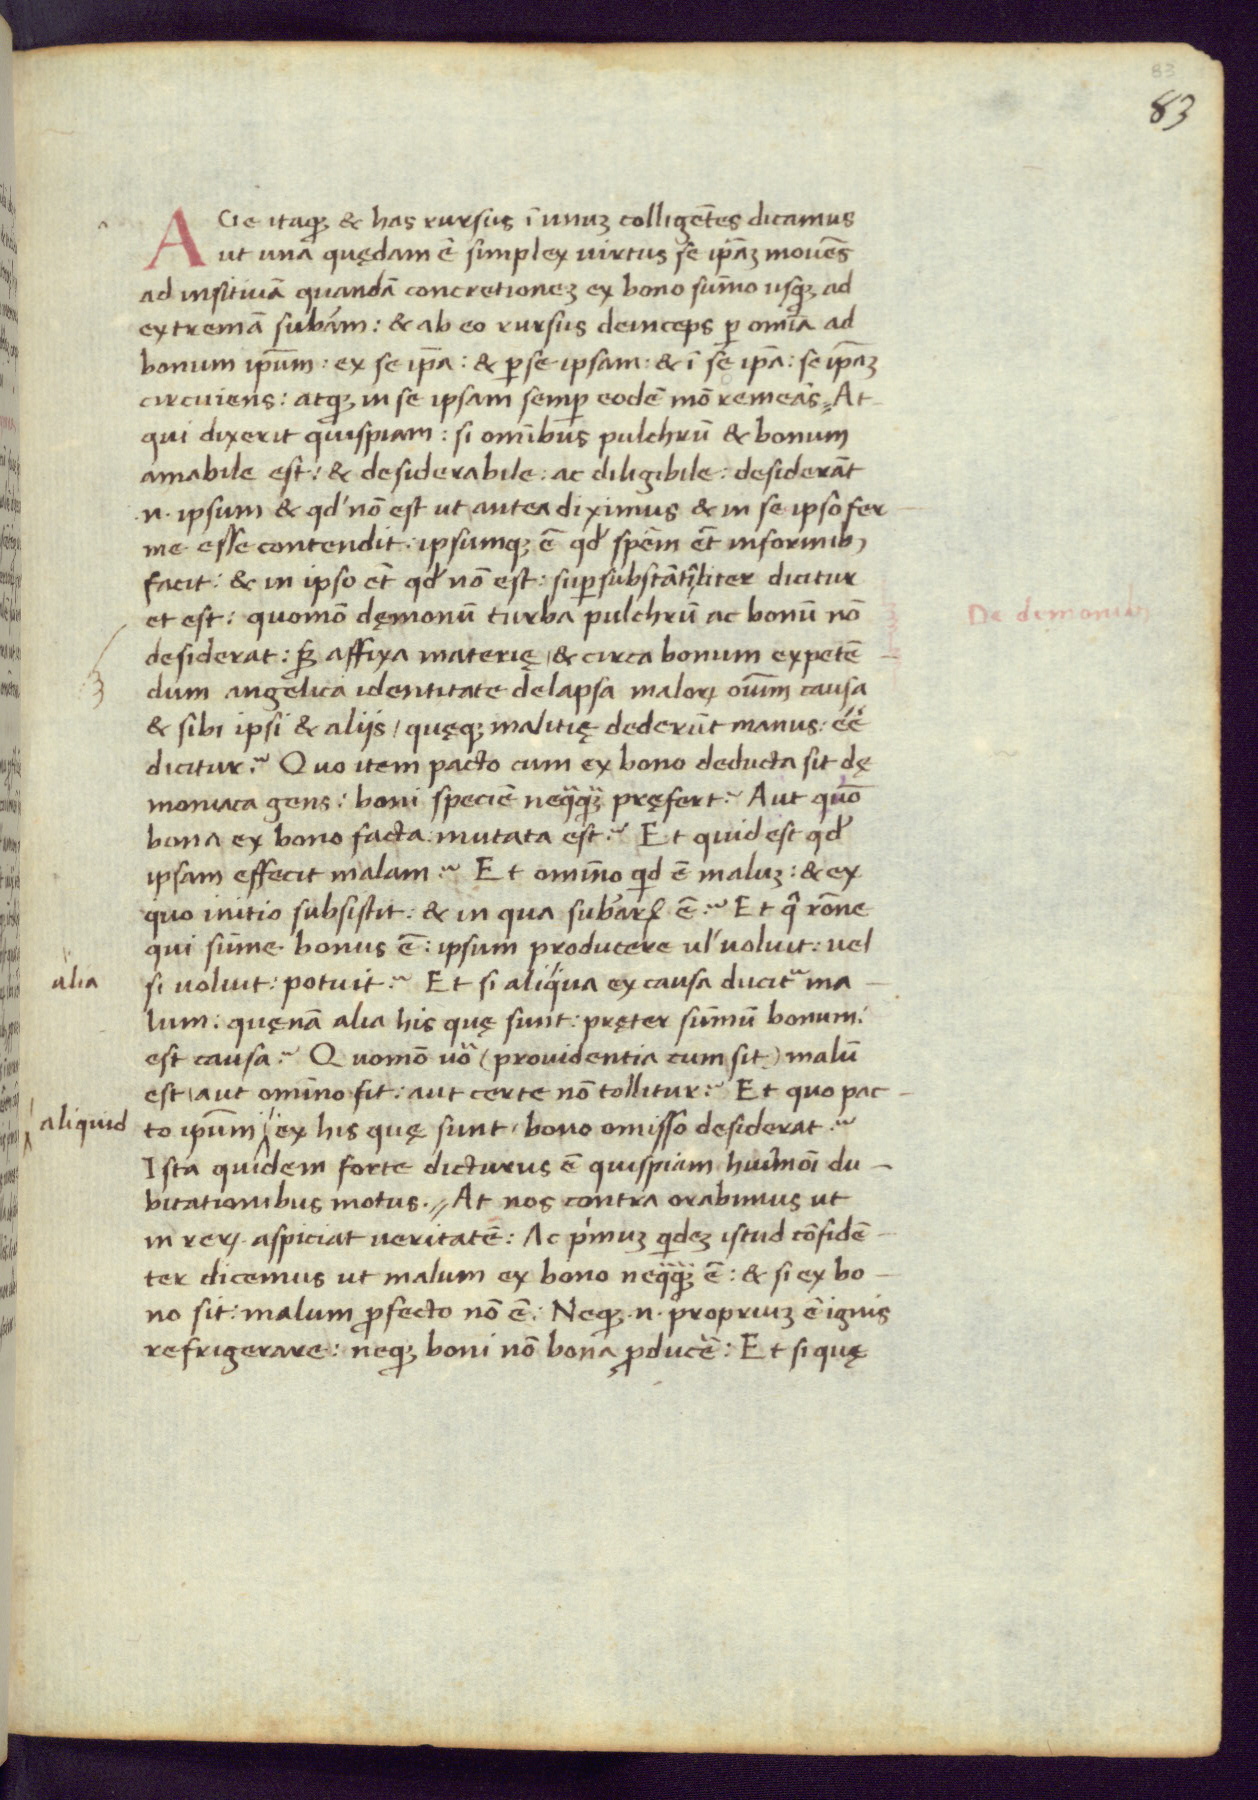 83
83
Acie itaqꝫ & has rursus ī unuꝫ colligētes dicamus
ut unā quędam ē simplex uirtus se ip̄aꝫ mouēs
ad insitiuā quandā concretioneꝫ ex bono sum̄o usqꝫ ad
extremā subām : & ab eo rursus deinceps ꝑ omīa ad
bonum ip̄um : ex se ip̄a : & ꝑ se ipsam : & ī se ip̄a : se ip̄aꝫ
circuiens : atqꝫ in se ipsam semꝑ eodē mō remeās „ At-
qui dixerit quispiam : si omībus pulchrū & bonum
amabile est : & desiderabile : ac diligibile : desiderāt
.n. ipsum & qd' nō est ut antea diximus & in se ipso fer-
me esse contendit : ipsumqꝫ ē qd' spēm ēt informibꝫ
facit : & in ipso ēt qd' nō est : suꝑsubstātiliter dicitur
et est : quomō dęmonū turba pulchrū ac bonū nō
De demonibꝫ
desiderat : sꝫ affixa materię / & circa bonum expetē-
dum angelica identitate delapsa maloꝝ oīum causa
& sibi ipsi & alijs / quęqꝫ malitię dederūt manus : ēē
dicitur ? Quo item pacto cum ex bono deducta sit dę
moniaca gens : boni speciē neq̈q̈ꝫ pręfert ? Aut quō
bona ex bono facta : mutata est ? Et quid est qd'
ipsam effecit malam ? Et omīno qd ē maluꝫ : & ex
quo initio subsistit : & in qua subarꝭ ē ? Et q̄ rōne
qui sūme bonus ē : ipsum producere ul' uoluit : uel
alia
si uoluit : potuit ? Et si aliqua ex causa ducit̃ ma-
lum : quęnā alia his quę sunt : pręter sūmū bonum :
est causa ? Quomō uō (prouidentia cum sit) malū
est / aut omīno fit : aut certe nō tollitur ? Et quo pac-
aliquid
to ip̄um / ex his quę sunt / bono omisso desiderat ?
Ista quidem forte dicturus ē quispiam huiꝰmōi du-
bitationibus motus . „ At nos contra orabimus ut
in reꝝ aspiciat ueritatē : Ac pimuꝫ qdeꝫ istud cōfidē-
ter dicemus ut malum ex bono neq̈q̈ꝫ ē : & si ex bo-
no sit : malum ꝓfecto nō ē : Neqꝫ .n. propriuꝫ ē ignis
refrigerare : neqꝫ boni nō bona ꝓducē̃ : Et si quę